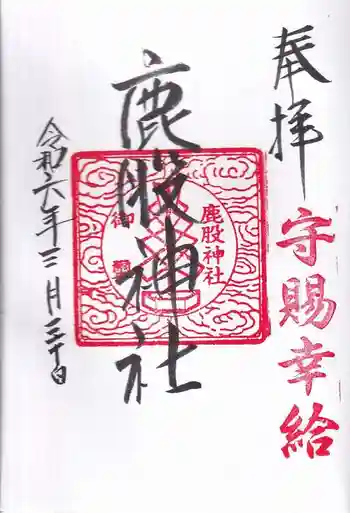 奉拝
守賜幸給
鹿股神社
鹿股神社
御璽
令和六年三月三十日